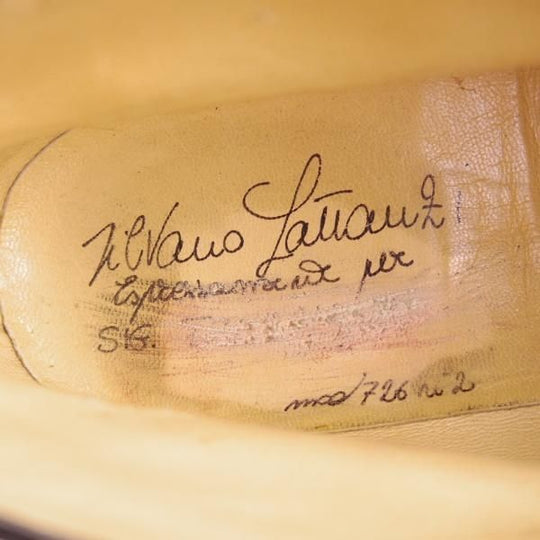 Silvano Lattanzi
Espressamente per
SIG.
mod 726 n° 2